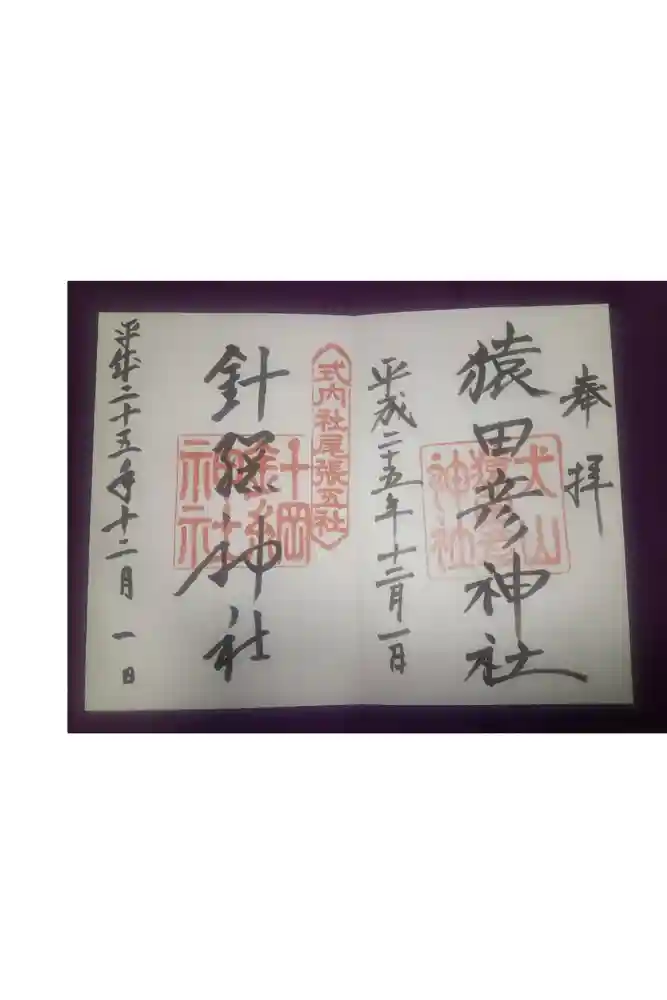 奉拝
猿田彦神社
犬山
猿田彦
神社
平成二十五年十二月一日
式内社尾張五社
針綱神社
針綱
神社
平成二十五年十二月一日